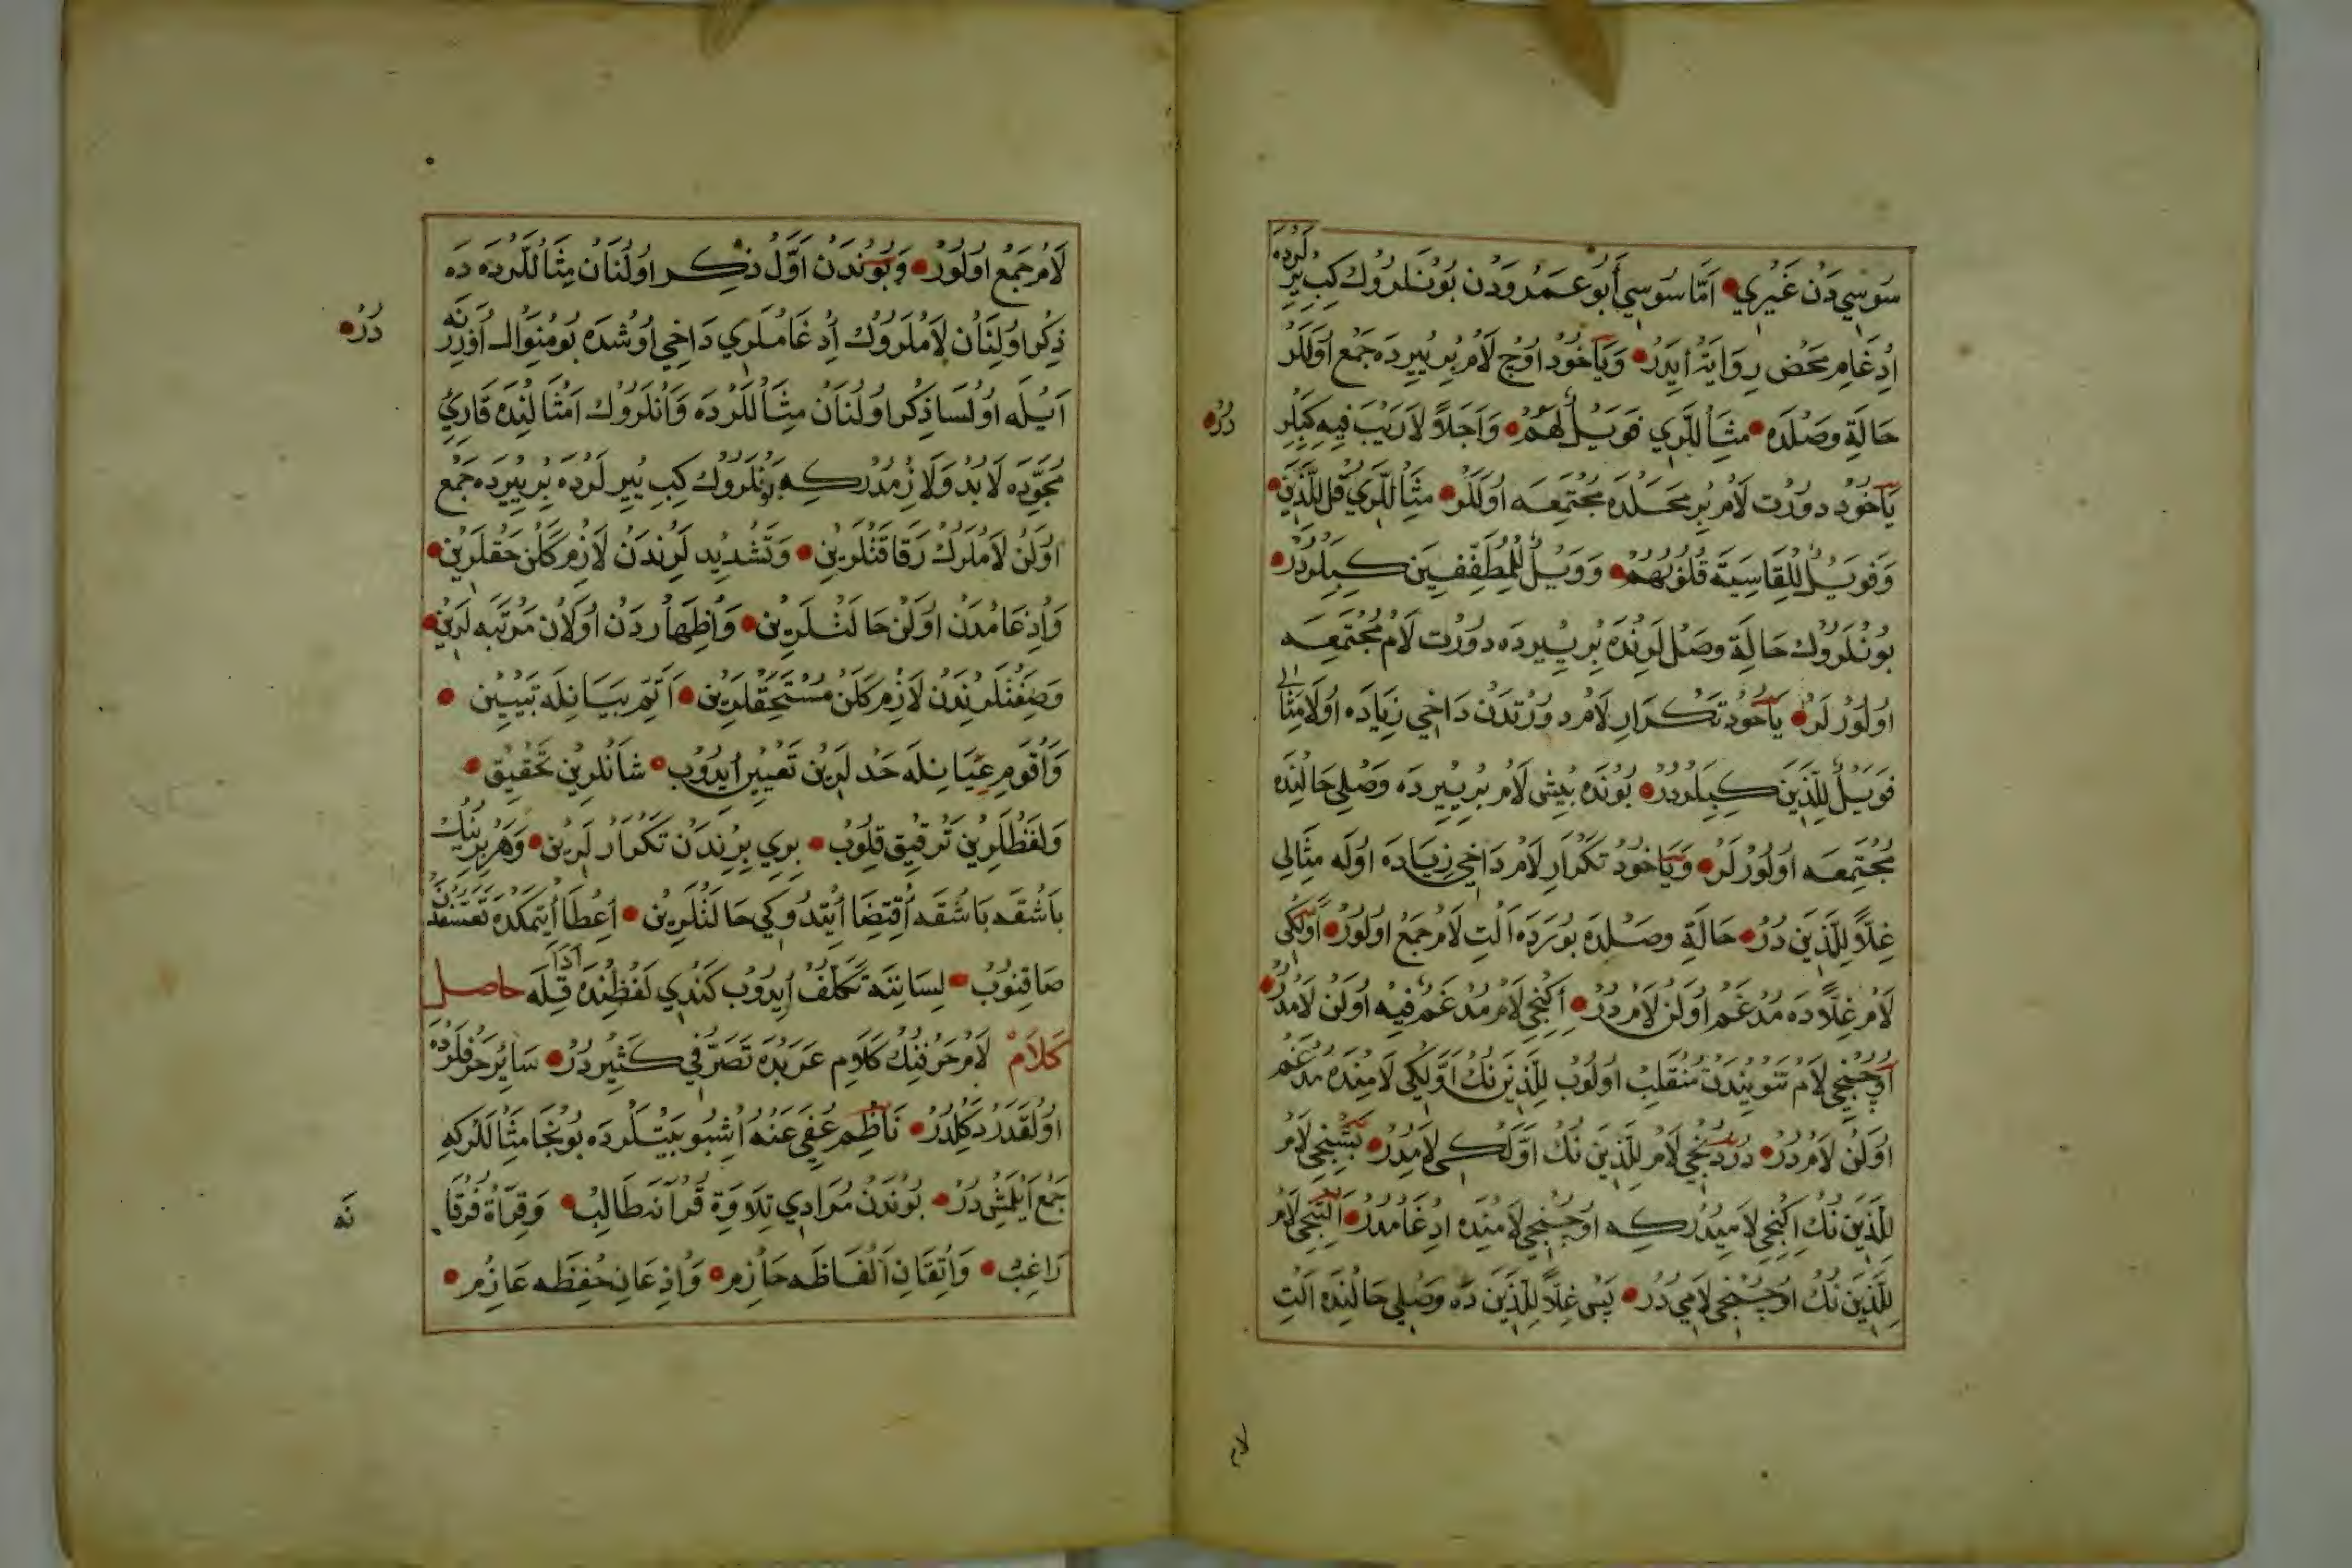 سُوسِي دَنْ غَيْرِي • اَمَّا سُوسِي أَبُو عَمْرُودَنْ بُونْلَرُوكْ كِبِي يِرْلَرْدَه
اِدْغَامِ مَحْضْ رِوَايَةْ اِيدَرْ • وَيَاخُودْ اُوچْ لَامْ بِرْ يِيرْدَه جَمْع اُولَلَرْ
حَالَةِ وَصْلَدَه • مِثَاللَّرِي فَوَيْلٌ لَهُمْ • وَاَجَلًا لَارَيْبَ فِيهِ كِبِيلَرْ دُرْ •
يَاخُودْ دورْت لَامْ بِرْ مَحَلْدَه مُجْتَمِعَه اُولَلَرْ • مِثَاللَّرِي قُلْ لِلَّذِينَ •
وَفَوَيْلٌ لِلْقَاسِيَةِ قُلُوبُهُمْ • وَوَيْلٌ لِلْمُطَفِّفِينَ كِبِيلَرْدُرْ •
بُونْلَرُوكْ حَالَةِ وَصْلَلَرِنْدَه بِرْ يِيرْدَه دورْت لَامْ مُجْتَمِعَه
اُولُورْلَرْ • يَاخُودْ تَكْرَارِ لَامْ دورْتدَنْ دَاخِي زِيَادَه اُولَا مِثَالِي
فَوَيْلٌ لِلَّذِينَ كِبِيلَرْدُرْ • بُونْدَه بِيشْ لَامْ بِرْ يِيرْدَه وَصْلِي حَالِنْدَه
مُجْتَمِعَه اُولُورْلَرْ • وَيَاخُودْ تَكْرَارِ لَامْ دَاخِي زِيَادَه اُولَه مِثَالِي
غِلًّا لِلَّذِينَ دُرْ • حَالَةِ وَصْلدَه بُورَدَه اَلْتِ لَامْ جَمْع اُولُورْ • اَوَّلْكِي
لَامْ غِلًّادَه مُدْغَمْ اُولَنْ لَامْ دُرْ • اِكِنْجِي لَامْ مُدْغَمْ فِيهِ اُولَنْ لَامْدُرْ •
اُوچُنْجِي لَامْ تَنْوِينْدَنْ مُنْقَلِبْ اُولُوبْ لِلَّذِينَ نِكْ اَوَّلْكِي لَامِنْدَه مُدْغَمْ
اُولَنْ لَامْ دُرْ • دُرْدُنْجِي لَامْ لِلَّذِينَ نِكْ اَوَّلْكِي لَامِدُرْ • بَشِنْجِي لَامْ
لِلَّذِينَ نِكْ اِكِنْجِي لَامِيدُرْكِه اُوچُنْجِي لَامِنْدَه اِدْغَامْدُرْ • اَلْتِنْجِي لَامْ
لِلَّذِينَ نِكْ اُوچُنْجِي لَامِي دُرْ • پَسْ غِلًّا لِلَّذِينَ دَه وَصْلِي حَالِنْدَه اَلْتِ
لام
لَامْ جَمْع اُولُورْ • وَبُونْدَنْ اَوَّلْ ذِكْر اُولُنَانْ مِثَاللَّرْدَه دَه
ذِكْر اُولُنَانْ لَامْلَرُوكْ اِدْغَامْلَرِي دَاخِي اُوشْدَه بُو مِنْوَالْ اُوزِرِنَه دُرْ •
اَيْلَه اُولْسَا ذِكْر اُولُنَانْ مِثَاللَّرْدَه وَانْلَرُوكْ اَمْثَالِنْدَه قَارِئِ
مُجَوِّدَه لَابُدْ وَلَازِمْدُرْكِه بُونْلَرُوكْ كِبِي يِيرْلَرْدَه بِرْ يِيرْدَه جَمْع
اُولَنْ لَامْلَرِكْ رَقَاقَتْلَرِينْ • وَتَشْدِيدْلَرِنْدَنْ لَازِمْ كَلَنْ حَقْلَرِينْ •
وَاِدْغَامْدَنْ اُولَنْ حَالَتْلَرِينْ • وَاِظْهَارْدَنْ اُولَانْ مَرْتَبَهلَرِينْ •
وَصِفَتْلَرِنْدَنْ لَازِمْ كَلَنْ مُسْتَحَقْلَرِينْ • اَتَمِّ بَيَانِلَه تَبْيِينْ •
وَاَقْوَمِ عَيَانِلَه حَدْلَرِينْ تَعْيِينْ اِيدُوبْ • شَانْلَرِينْ تَحْقِيقْ •
وَلَفْظْلَرِينْ تَرْقِيقْ قِلُوبْ • بِرِي بِرِنْدَنْ تَكْرَارْلَرِينْ • وَهَرْ بِرِينِكْ
بَاشْقَه بَاشْقَه اِقْتِضَا اِيتْدُوكِي حَالَتْلَرِينْ • اِعْطَا اِيتْمَكْدَه تَعَسُّفْدَنْ
صَاقِنُوبْ • لِسَانِنَه تَكَلُّفْ اِيدُوبْ كَنْدِي لَفْظِنْدَه اَدَا قِلَه حاصل
كَلَامْ لَامْ حَرْفِنِكْ كَلَامِ عَرَبْدَه تَصَرُّفِي كَثِيرْدُرْ • سَايِرْ حَرْفْلَرْدَه
اُولْقَدَرْ دَكِلْدُرْ • نَاظِمْ عُفِيَ عَنْهُ اُشْبُو بَيْتْلَرْدَه بُونْجَا مِثَاللَّرْكِه
جَمْع اَيْلَمِشْ دُرْ • بُونْدَنْ مُرَادِي تِلَاوَةِ قُرْآنَه طَالِبْ • وَقِرَاءَةِ فُرْقَانَه
رَاغِبْ • وَاِتْقَانِ اَلْفَاظَه حَازِمْ • وَاِذْعَانِ حِفْظَه عَازِمْ •